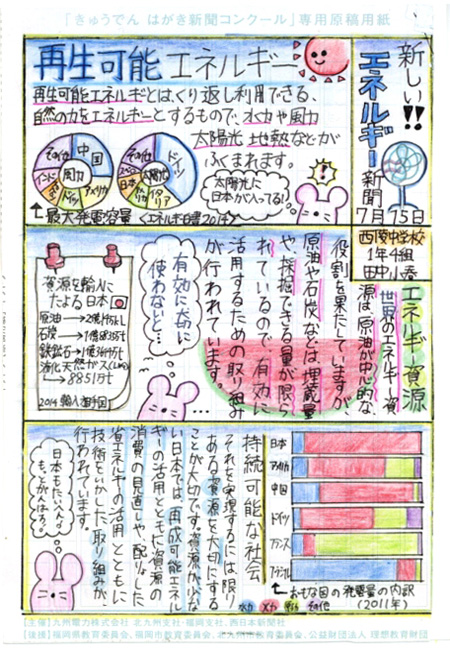 「きゅうでん はがき新聞コンクール」専用原稿用紙
新しい!!
エネルギー
新聞
7月15日
西陵中学校
1年4組
再生可能エネルギー
再生可能エネルギとは、くり返し利用できる、
自然の力をエネルギーとするもので、水力や風力
太陽光 地熱などが
ふくまれます。
その他
中国
風力
アメリカ
ドイツ
インド
その他
ドイツ
太陽光
日本
イタリア
太陽光に
日本が入ってる!
!
↑
最大発電容量 <エネルギ白書2014>
エネルギー資源
世界のエネルギー資
源は、原油が中心的な
役割を果たしていますが、
原油や石炭などは埋蔵量
や、採掘できる量が限ら
れているので、有効に
活用するための取り組み
が行われています。
有効に大切に
使わないと…
…
資源を輸入に
たよる日本
原油
石炭
鉄鉱石
液化天然ガス(LNG)
8851万t
持続可能な社会
それを実現するには、限り
ある資源を大切にする
ことが大切です。資源が少な
い日本では、再成可能エネル
ギーの活用とともに資源の
消費の見直しや、
省エネルギーの活用とともに
技術をいかした取り組みが、
行われています。
日本
アメリカ
中国
ドイツ
フランス
ブラジル
↑おもな国の発電量の内訳
(2011年)
水力 火力 原子力 その他
【主催】九州電力株式会社 北九州支社・福岡支社、西日本新聞社
【後援】福岡県教育委員会、福岡市教育委員会、北九州市教育委員会、公益財団法人 理想教育財団